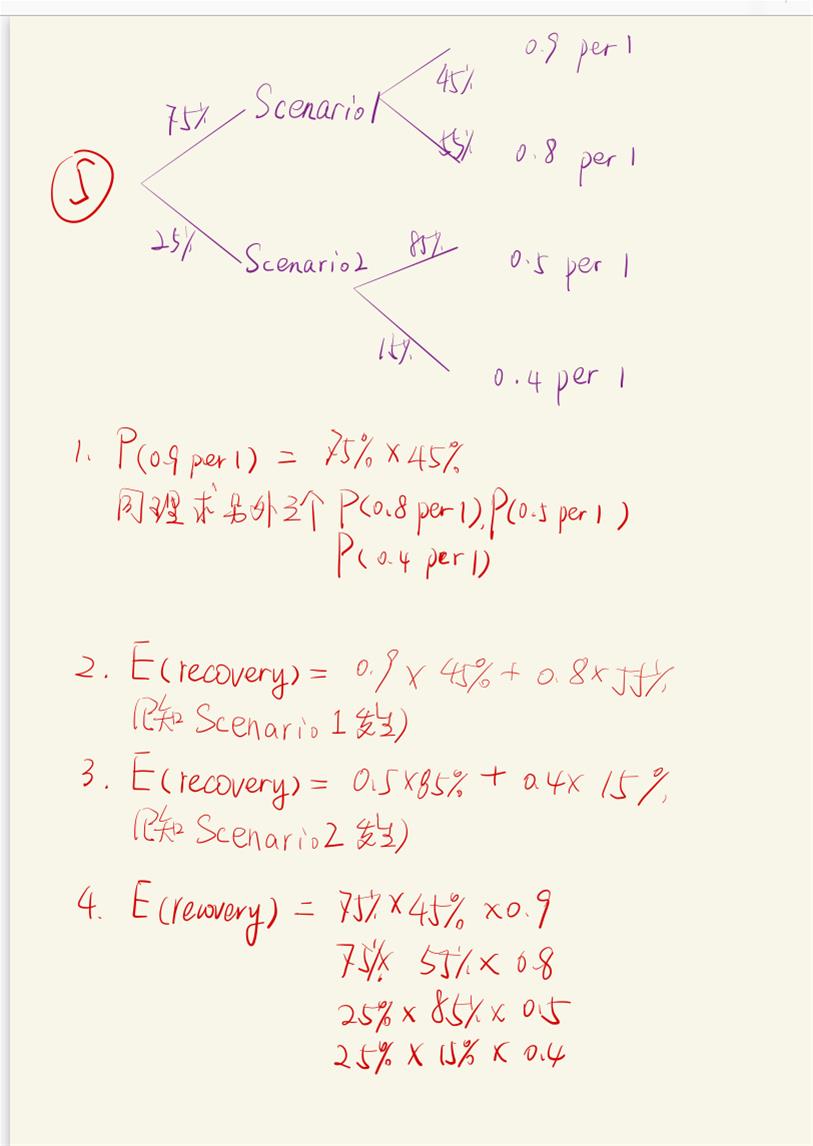 0.9 per 1
45%
75%
Scenario1
55%
0.8 per 1
5
25%
Scenario2
85%
0.5 per 1
15%
0.4 per 1
1. P(0.9 per 1) = 75% × 45%
同理求另外三个 P(0.8 per 1), P(0.5 per 1)
P(0.4 per 1)
2. E(recovery) = 0.9 × 45% + 0.8 × 55%
(已知 Scenario 1 发生)
3. E(recovery) = 0.5×85% + 0.4× 15%
(已知 Scenario2 发生)
4. E(recovery) = 75% × 45% ×0.9
75% 55% × 0.8
25% × 85% × 0.5
25% × 15% × 0.4